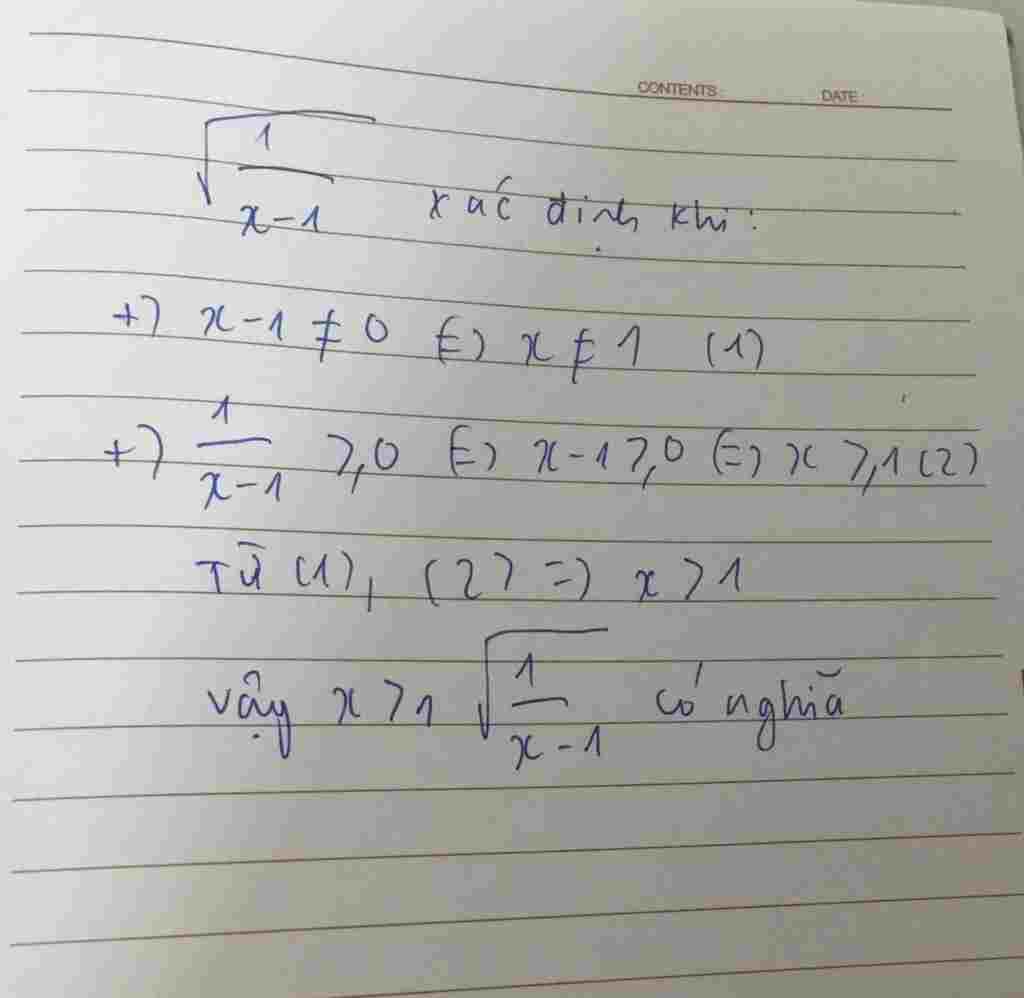 CONTENTS: DATE:
√(1/(x-1)) xác định khi:
+) x-1 ≠ 0 (=) x ≠ 1 (1)
+) 1/(x-1) ⩾ 0 (=) x-1 ⩾ 0 (=) x ⩾ 1 (2)
Từ (1), (2) =) x > 1
vậy x > 1 √(1/(x-1)) có nghiã